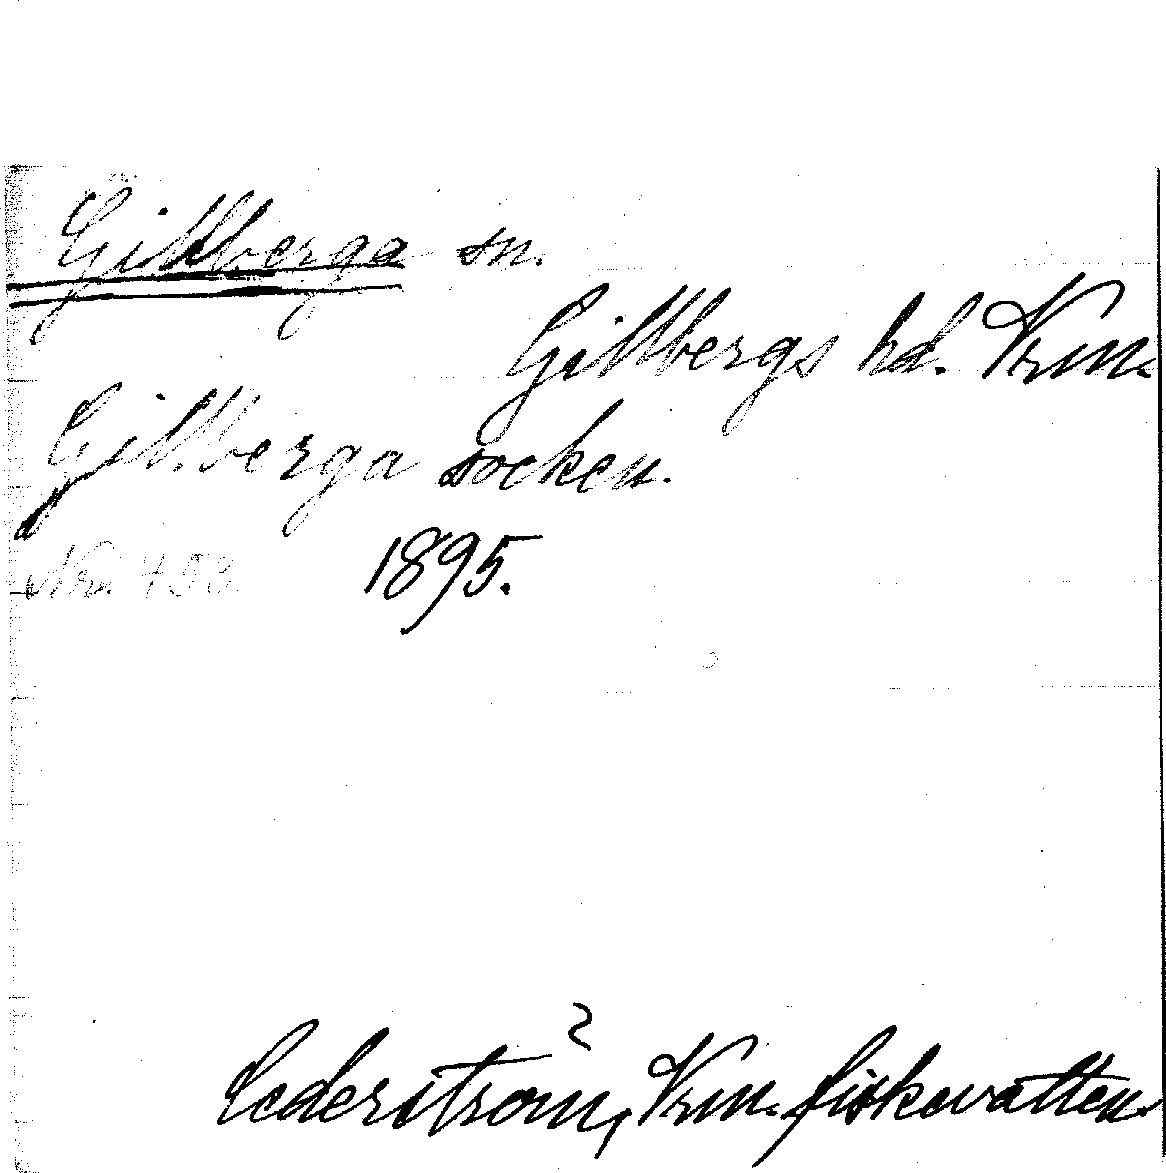 Gillberga sn.
Gillbergs hd. Vrm.
Gillberga socken.
Nr. 753 1895.
Cederström, Vrm. fiskevatten.